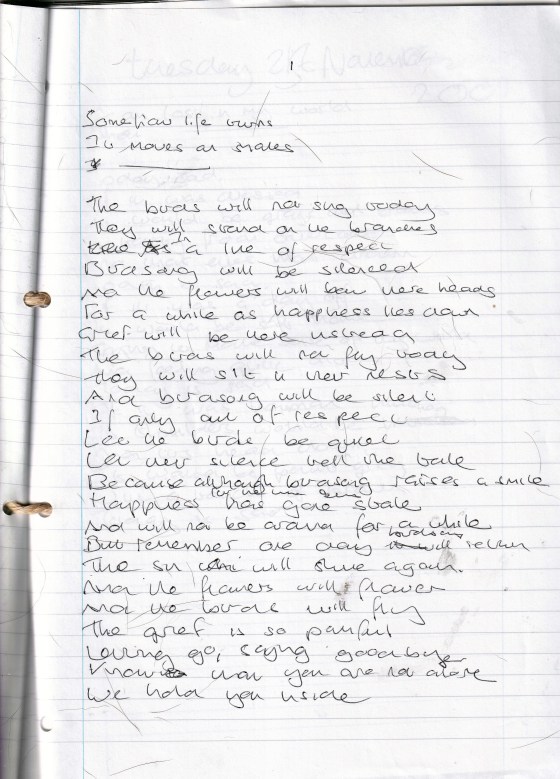 1
Tuesday 21st November
Somehow life turns
It moves or shakes
The birds will not sing today
They will stand on the branches
In a line of respect
Birdsong will be silenced
And the flowers will bow there heads
For a while as happiness lies down
Grief will be here instead
The birds will not fly today
They will sit in their nests
And birdsong will be silent
If only out of respect
Let the birds be quiet
Let their silence tell the tale
Because although birdsong raises a smile
Happiness has gone stale
And will not be around for a while
But remember one day birdsong will return
The sun will shine again.
And the flowers will flower
And the birds will fly
The grief is so painful
Letting go, saying goodbye
Know that you are not alone
We hold you inside